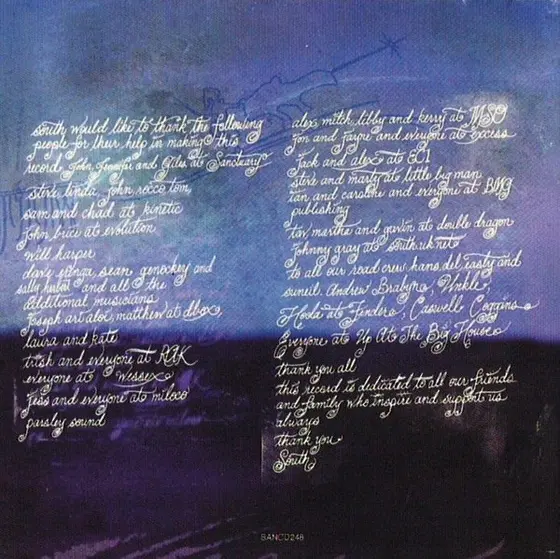 south would like to thank the following
people for their help in making this
record. John, Jennifer and Giles at Sanctuary
steve linda john rocco tom
sam and chad at kinetic
john bice at evolution
will harper
dave eringa sean genockey and
sally herbert and all the
additional musicians
joseph art aloi, matthew at dbox,
laura and kate
trish and everyone at RAK
everyone at wessex
jess and everyone at miloco
parsley sound
alex mitch libby and kerry at MSO
jon and jayne and everyone at excess
jack and alex at EC1
steve and marty at little big man
ian and caroline and everyone at BMG
publishing
tav, martine and gavin at double dragon
johnny gray at south.uk.net
to all our road crew, hans, del, rasty and
suneil. Andrew Brabyn, Unkle,
at Fender, Caswell
Everyone at Up At The Big House
thank you all
this record is dedicated to all our friends
and family who inspire and support us
always
thank you
South
SANCD248